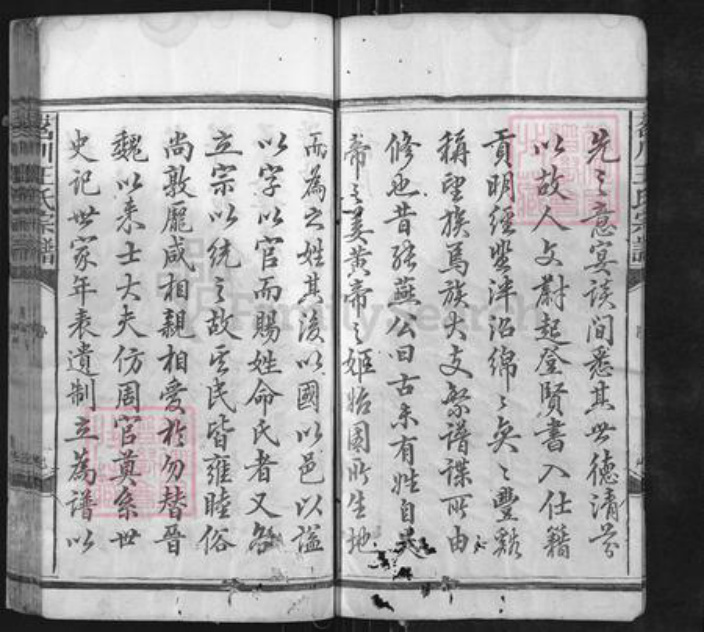 先之意宴談間悉其世德清芬
以故人文蔚起登賢書入仕籍
貢明經遊泮沼綿綿奕奕豐谿
稱望族焉族大支繁譜諜所由
修也昔張燕公曰古未有姓自炎
帝之姜黃帝之姬始因所生地
而為之姓其後以國以邑以諡
以字以官而賜姓命氏者又各
立宗以統之故其民皆雍睦俗
尚敦龐咸相親相愛於勿替晉
魏以來士大夫仿周官奠系世
史記世家年表遺制立為譜以
王氏宗譜
川王氏宗譜
FamilySearch